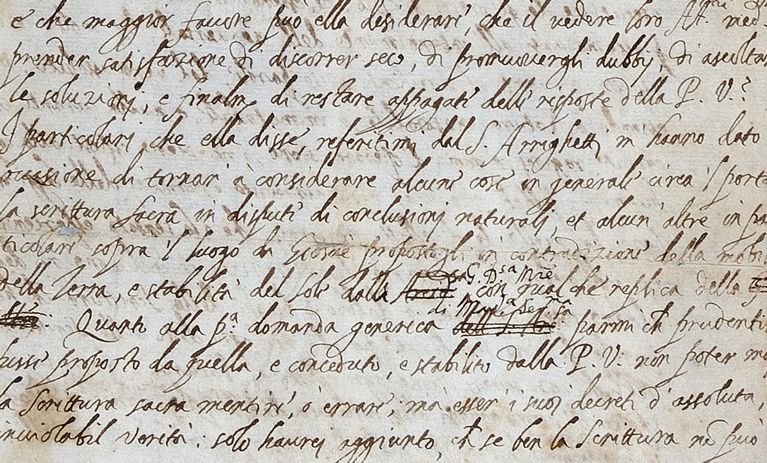 e che maggior favore può ella desiderare, che il vedere loro
prender satisfazione di discorrer seco, di promuovergli dubbij, di ascoltar
le soluzioni, e finalm di restare appagati delle risposte della P. V.?
I particolari che ella disse, referitimi dal S. Arrighetti m hanno dato
occasione di tornar à considerare alcune cose in generale circa 'l portar
la scrittura sacra in dispute di conclusioni naturali, et alcun' altre in par
ticolare sopra 'l luogo di Giosue propostogli in contradizione della mobil
della Terra, e stabilità del Sole dalla con qualche replica della
Quanto alla p.a domanda generica parmi ch prudentiss
fusse proposto da quella, e conceduto, e stabilito dalla P. V. non poter mai
la Scrittura sacra mentire, ò errare, ma esser i suoi decreti d' assoluta,
inviolabil verità: solo haurei aggiunto, ch se ben la Scrittura nò può